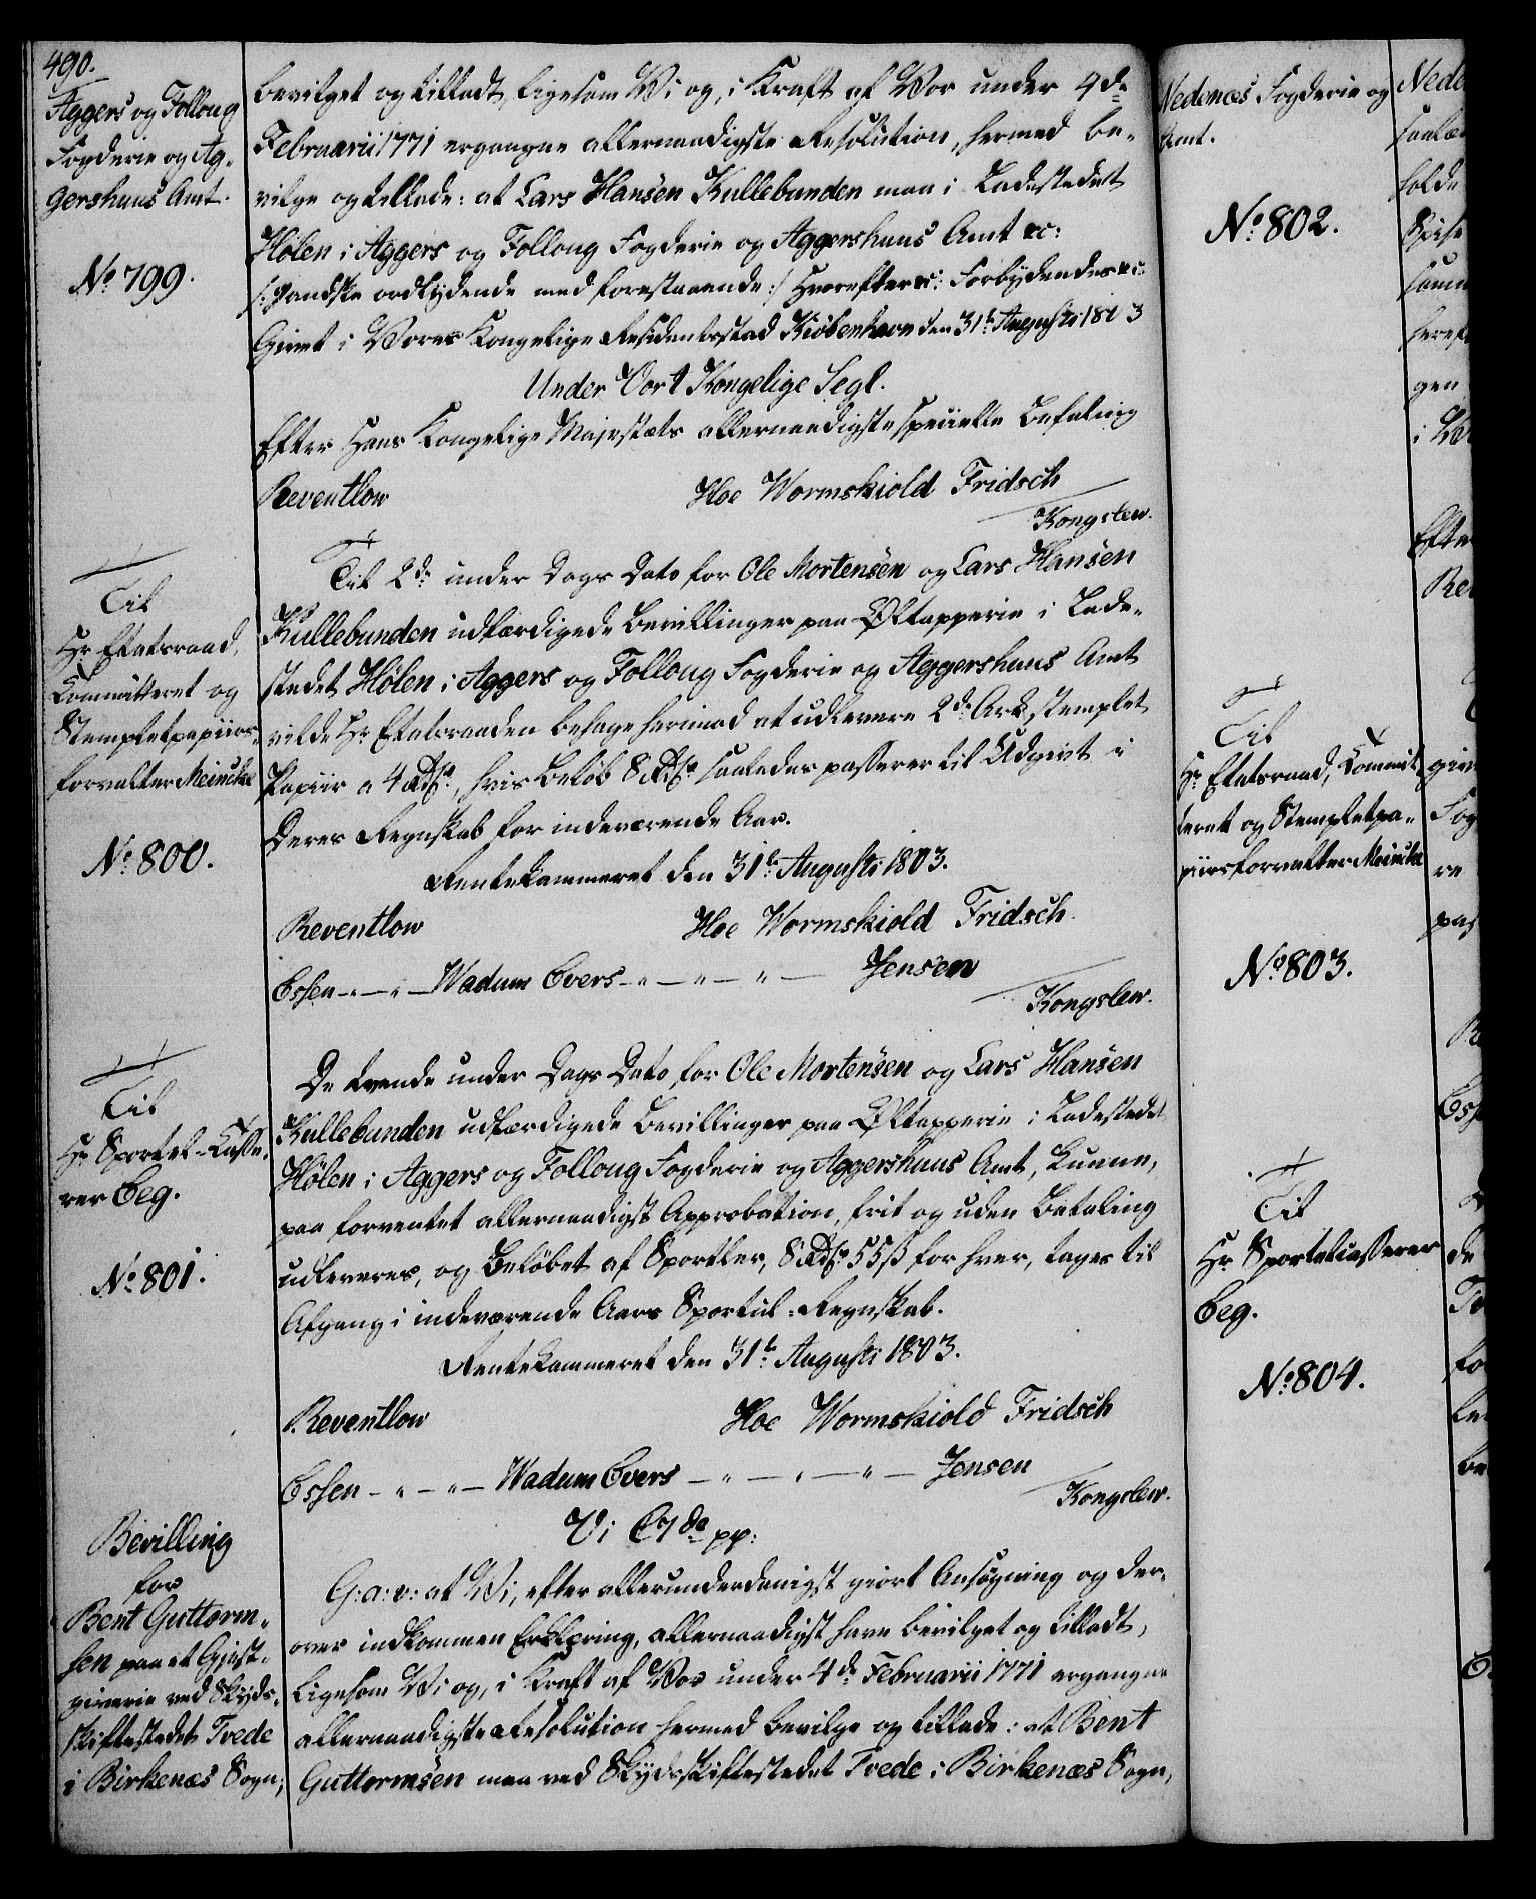 490.
Aggers og Folloug
Fogderie og Ag-
gershuus Amt.
No. 799.
bevilget og tilladt, ligesom Vi og, i Kraft af Vor under 4de
Februarii 1771 ergangne allernaadigste Resolution, hermed be-
vilge og tillade: at Lars Hansen Kullebunden maa i Ladestedet
Hølen i Aggers og Folloug Fogderie og Aggershuus Amt &c:
/: Ganske ordlydende med forestaaende :/ Hvorefter &c: Forbydendes &c:
Givet i Vores Kongelige Residentzstad Kiøbenhavn den 31te Augusti 1803
Under Vort Kongelige Segl.
Efter Hans Kongelige Majestæts allernaadigste specielle Befaling
Reventlow Hoe Wormskiold Fridsch
Kongslew.
Til
Hr. Etatsraad,
Committeret og
Stempletpapiirs-
forvalter Meincke
No. 800.
Til 2de under Dags Dato for Ole Mortensen og Lars Hansen
Kullebunden udfærdigede Bevillinger paa Øltapperie i Lade-
stedet Hølen i Aggers og Folloug Fogderie og Aggershuus Amt
vilde Hr. Etatsraaden behage herimod at udlevere 2de Ark stemplet
Papiir a 4 Rdr., hvis Beløb 8 Rdr. saaledes passerer til Udgivt i
Deres Regnskab for indeværende Aar.
Rentekammeret den 31te Augusti 1803.
Reventlow Hoe Wormskiold Fridsch.
Essen - " - " - Wadum Evers - " - " - " - Jensen
Kongslew.
Til
Hr. Sportel-Casse-
rer Beg.
No. 801.
De tvende under Dags Dato for Ole Mortensen og Lars Hansen
Kullebunden udfærdigede Bevillinger paa Øltapperie i Ladestedet
Hølen i Aggers og Folloug Fogderie og Aggershuus Amt, kunne,
paa forventet allernaadigst Approbation, frit og uden Betaling
udleveres, og Beløbet af Sportler, 8 Rdr. 55 ß for hver, tages til
Afgang i indeværende Aars Sportul-Regnskab.
Rentekammeret den 31te Augusti 1803.
Reventlow Hoe Wormskiold Fridsch
Essen - " - " - Wadum Evers - " - " - " - Jensen
Kongslew.
Bevilling
for
Bent Guttorm-
sen paa et Gjæst-
giverie ved Skyds-
skiftestedet Tvede
i Birkenæs Sogn,
Vi C 7de pp:
G: a: v: at Vi, efter allerunderdanigst giort Ansøgning og der-
over indkommen Erklæring, allernaadigst have bevilget og tilladt,
ligesom Vi og, i Kraft af Vor under 4de Februarii 1771 ergangne
allernaadigste Resolution hermed bevilge og tillade: at Bent
Guttormsen maa ved Skydsskiftestedet Tvede i Birkenæs Sogn,
Nedenæs Fogderie og
Amt.
No. 802.
Til
Hr. Etatsraad, Commit-
teret og Stempletpa-
piirsforvalter Meincke
No. 803.
Til
Hr. Sportelcasserer
Beg.
No. 804.